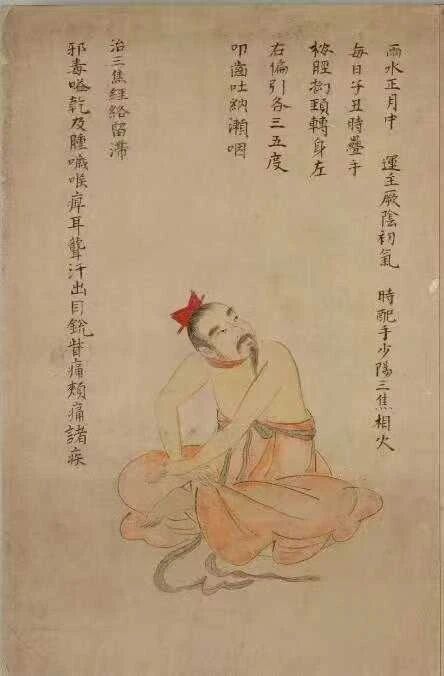 雨水正月中　運主厥陰初氣　時配手少陽三焦相火
每日子丑時疊手
按脛拗頸轉身左
右偏引各三五度
叩齒吐納漱咽
治三焦經絡留滯
邪毒嗌乾及腫噦喉痺耳聾汗出目銳眥痛頰痛諸疾